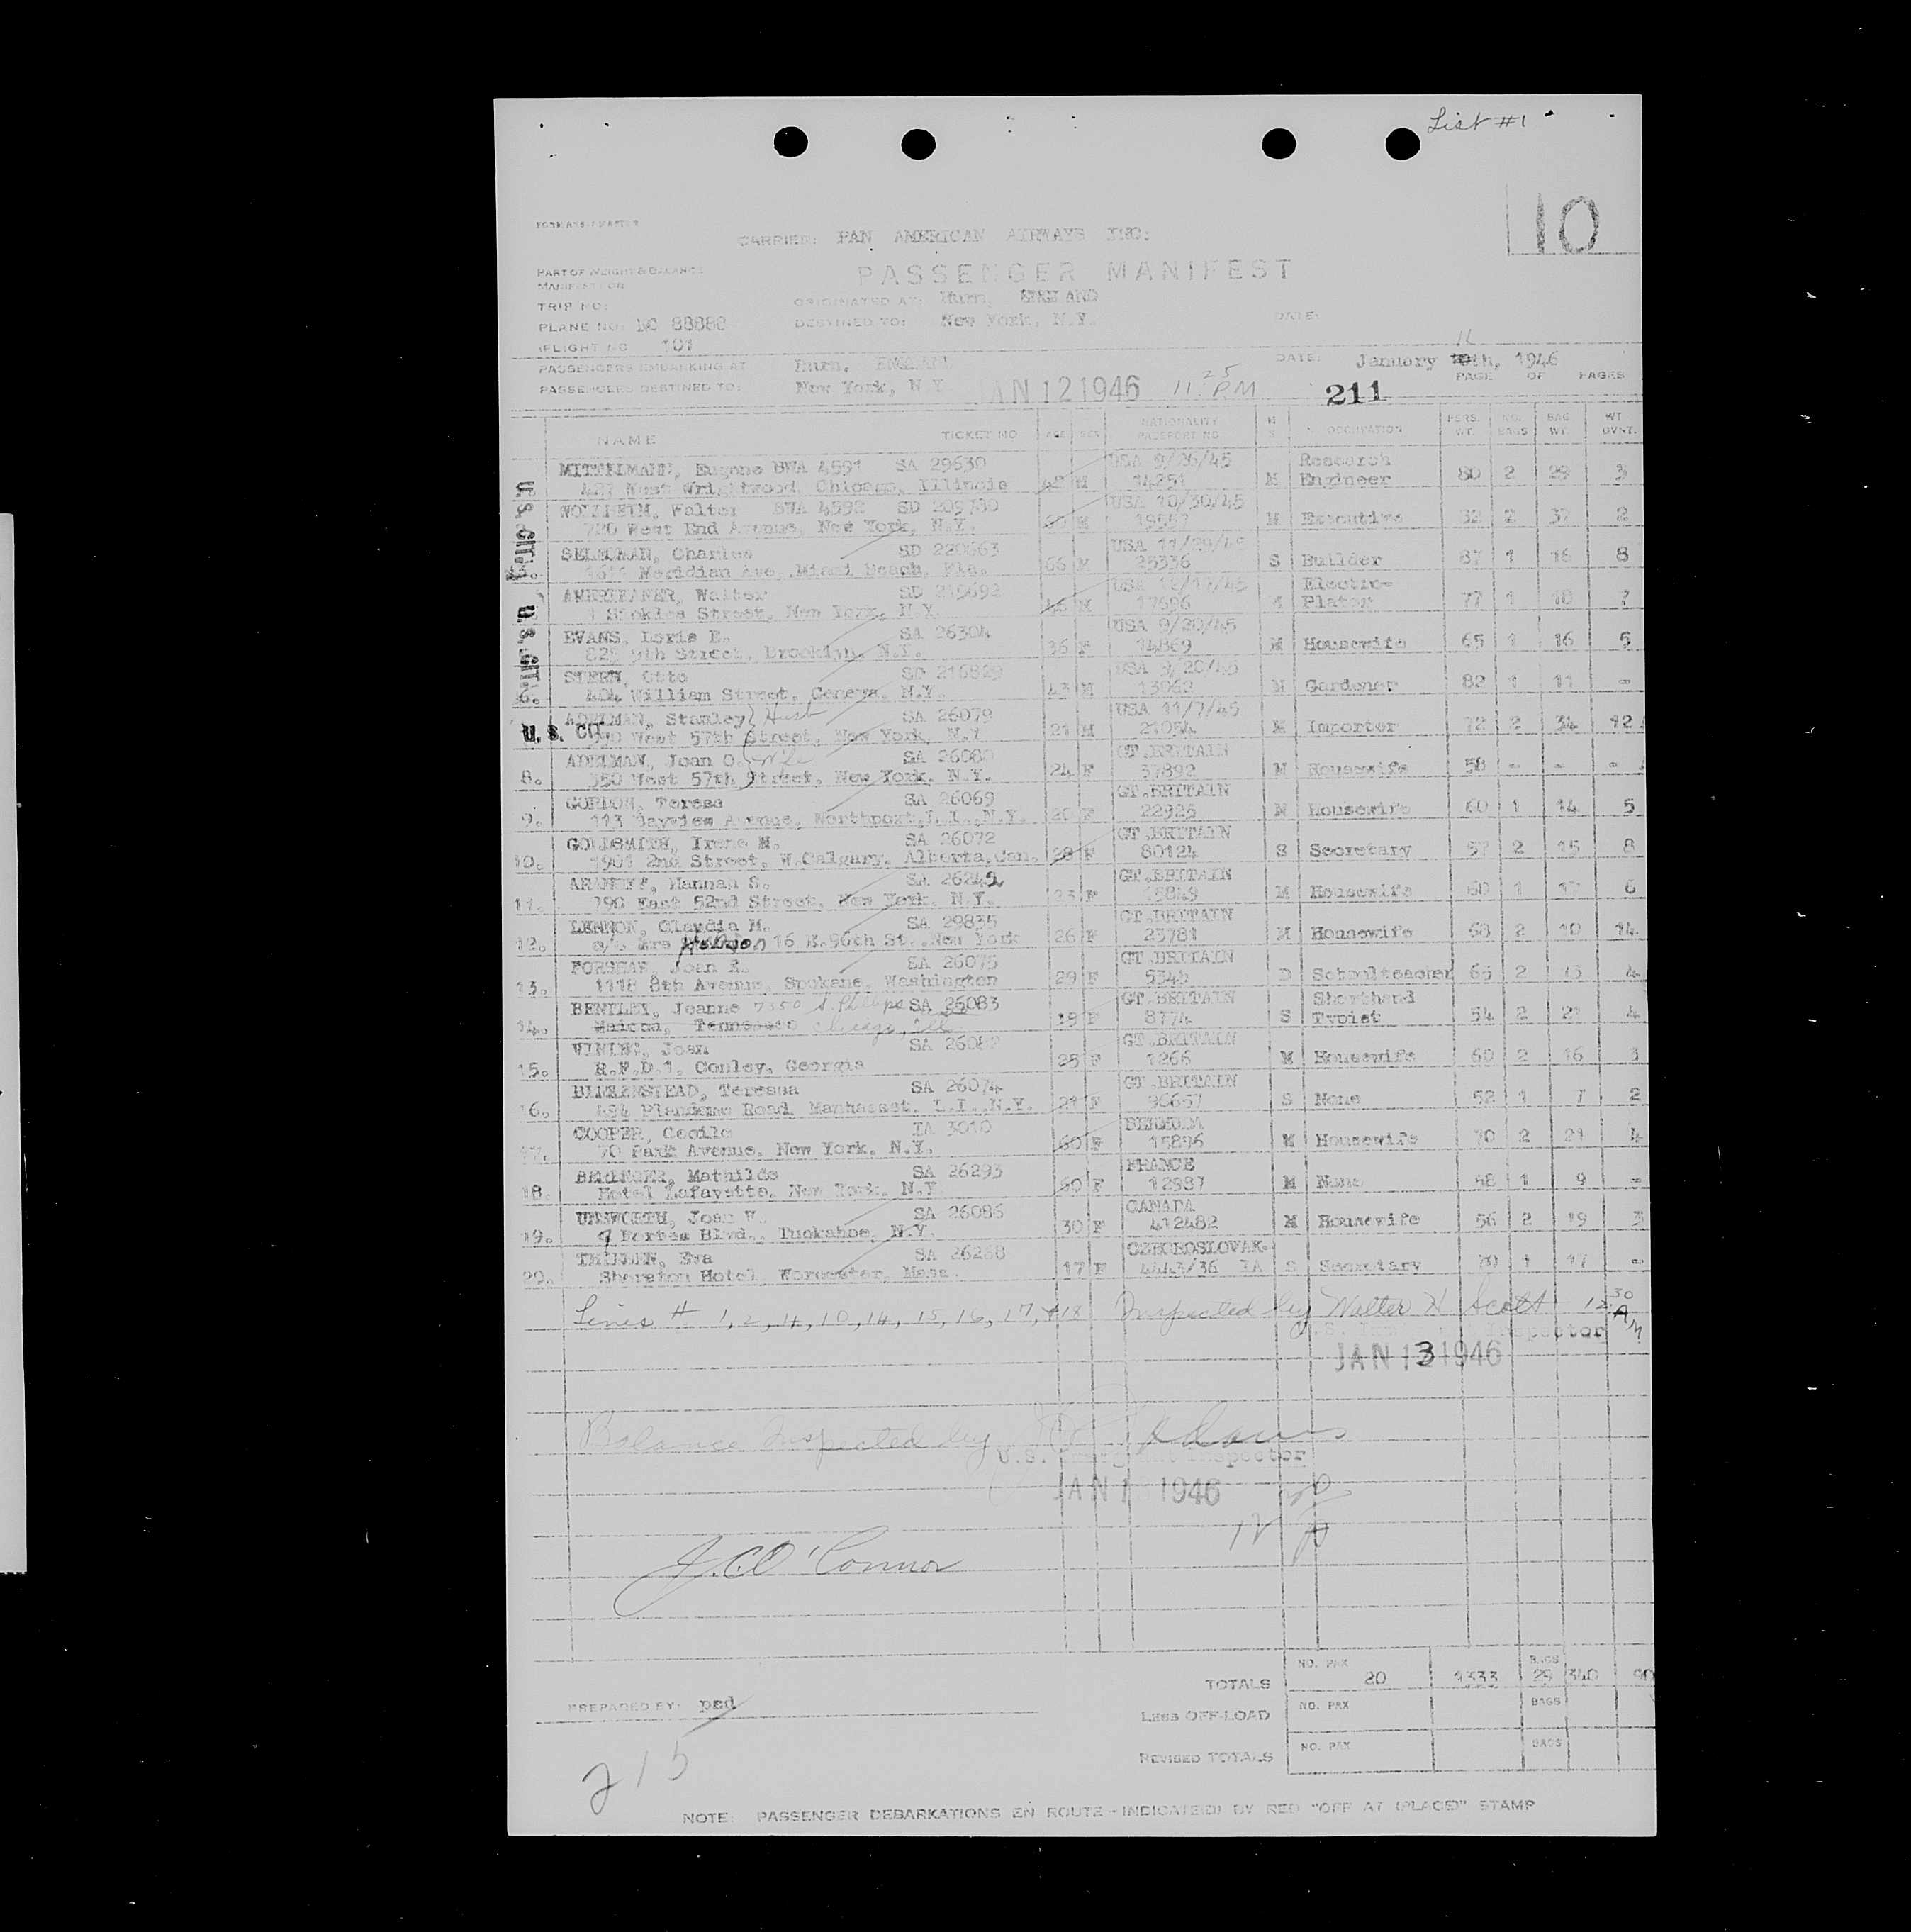 List #1
10
CARRIER: PAN AMERICAN AIRWAYS INC:
PART OF WEIGHT & BALANCE
MANIFEST FOR
PASSENGER MANIFEST
TRIP NO:
ORIGINATED AT: Hurn, ENGLAND
PLANE NO: NC 88888
DESTINED TO: New York, N.Y.
DATE:
FLIGHT NO 101
11
PASSENGERS EMBARKING AT Hurn, ENGLAND
DATE: January 10th, 1946
PASSENGERS DESTINED TO: New York, N.Y. JAN 12 1946 11 25 PM
211 PAGE OF PAGES
NAME TICKET NO AGE SEX NATIONALITY PASSPORT NO M S OCCUPATION PERS. WT. NO. BAGS BAG WT. WT. OVWT.
MITTELMANN, Eugene BWA 4591 SA 29630 USA 9/26/45 Research
427 West Wrightwood, Chicago, Illinois 42 M 14251 M Engineer 80 2 29 3
WOLLHEIM, Walter BWA 4592 SD 209780 USA 10/30/45
720 West End Avenue, New York, N.Y. M 19557 M Executive 82 2 32 2
Charles SD 220663 USA 11/29/45
3. 1611 Meridian Ave., Miami Beach, Fla. 66 M 25336 S Builder 87 1 16 8
AMERIKANER, Walter SD 215692 USA 12/17/45 Electro-
Street, New York, N.Y. 45 M 17696 M Plater 77 1 18 7
EVANS, Loris E. SA 26304 USA 9/20/45
825 9th Street, Brooklyn, N.Y. 36 F 14869 M Housewife 65 1 16 5
STERN, Otto SD 216829 USA 9/20/45
6. 404 William Street, Geneva, N.Y. 43 M 13062 M Gardener 82 1 11 -
ADELMAN, Stanley Husb SA 26079 USA 11/7/45
U.S. CIT. West 57th Street, New York, N.Y. 21 M 21054 M Importer 72 2 34 12
ADELMAN, Joan O. SA 26080 GT.BRITAIN
8. 350 West 57th Street, New York, N.Y. 24 F 37892 M Housewife 58 - - -
GORDON, Teresa SA 26069 GT.BRITAIN
9. 113 Bayview Avenue, Northport, L.I., N.Y. 20 F 22925 M Housewife 60 1 14 5
GOLDSMITH, Irene M. SA 26072 GT.BRITAIN
10. 1901 2nd Street, W.Calgary, Alberta, Can. 28 F 80124 S Secretary 57 2 15 8
ARANOFF, Hannah S. SA 26242 GT.BRITAIN
11. East 52nd Street, New York, N.Y. 23 F 15849 M Housewife 60 1 17 6
LENNON, Claudia M. SA 29835 GT.BRITAIN
12. c/o Mrs 16 E. 96th St., New York 26 F 23781 M Housewife 68 2 10 14
FORSHAW, Joan R. SA 26075 GT.BRITAIN
13. 1118 8th Avenue, Spokane, Washington 29 F 5345 D Schoolteacher 65 2 13 4
BENTLEY, Joanne 7350 S. Phillips SA 26083 GT.BRITAIN Shorthand
14. Tennessee Chicago, Ill 19 F 8774 S Typist 54 2 21 4
Joan SA 26082 GT.BRITAIN
15. R.F.D.1, Conley, Georgia 25 F 1266 M Housewife 60 2 16 3
Teressa SA 26074 GT.BRITAIN
16. 494 Plandome Road, Manhasset, L.I., N.Y. 21 F 96657 S None 52 1 7 2
COOPER, Cecile IA 3010 BELGIUM
17. 70 Park Avenue, New York, N.Y. 60 F 15896 M Housewife 70 2 21 4
Mathilde SA 26293 FRANCE
18. Hotel Lafayette, New York, N.Y. 60 F 12987 M None 48 1 9 -
UNSWORTH, Joan W. SA 26086 CANADA
19. 7 Forbes Blvd., Tuckahoe, N.Y. 30 F 412482 M Housewife 56 2 19 3
Eva SA 26268 CZECHOSLOVAK-
20. Sheraton Hotel, Worcester, Mass. 17 F 4443/36 IA S Secretary 70 1 17 -
Lines # 1, 2, 4, 10, 14, 15, 16, 17, + 18 Inspected by Walter H Scott 12 30 AM
U.S. Inspector
JAN 13 1946
Balance Inspected by
U.S. Immigrant Inspector
JAN 1 1946
J.C. O'Connor
TOTALS NO. PAX 20 1333 BAGS 29 340 90
PREPARED BY: psd
LESS OFF-LOAD NO. PAX BAGS
REVISED TOTALS NO. PAX BAGS
215
NOTE: PASSENGER DEBARKATIONS EN ROUTE - INDICATED BY RED "OFF AT (PLACE)" STAMP